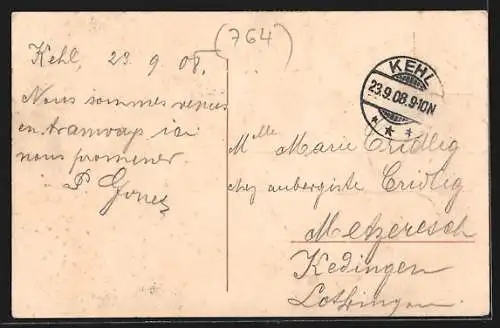 (764)
Kehl, 23. 9. 08.
Nous sommes venus
en tramways ici
nous promener
P.
KEHL
23.9.08.9-10N
Mlle Marie Cridlig
chez aubergiste Cridlig
Metzeresch
Kedingen
Lothringen